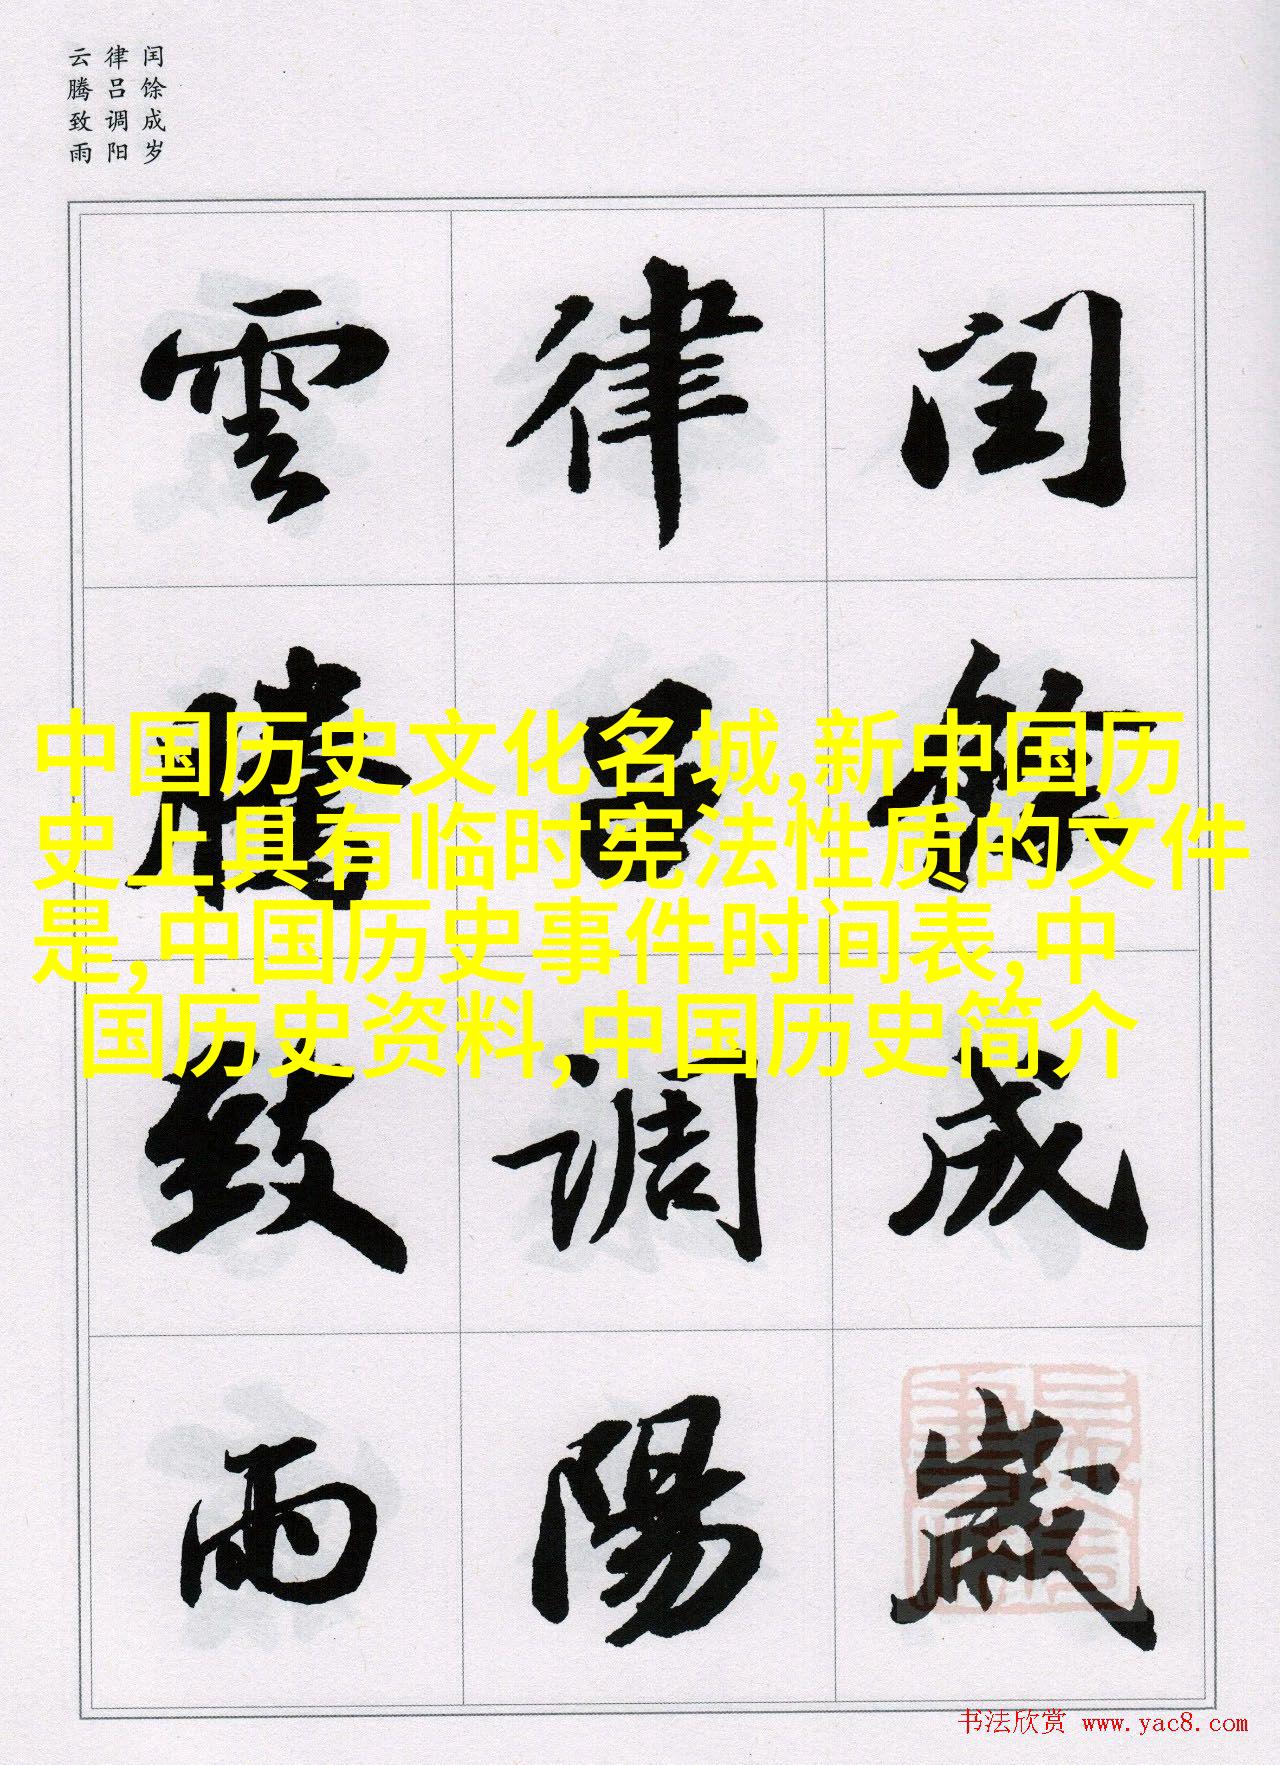 闰馀成岁
律吕调阳
云腾致雨
闰馀成歲
律吕调陽
雲騰致雨
中国历史文化名城,新中国历
史上具有临时宪法性质的文件
是,中国历史事件时间表,中
国历史资料,中国历史简介
书法欣赏 www.yac8.com